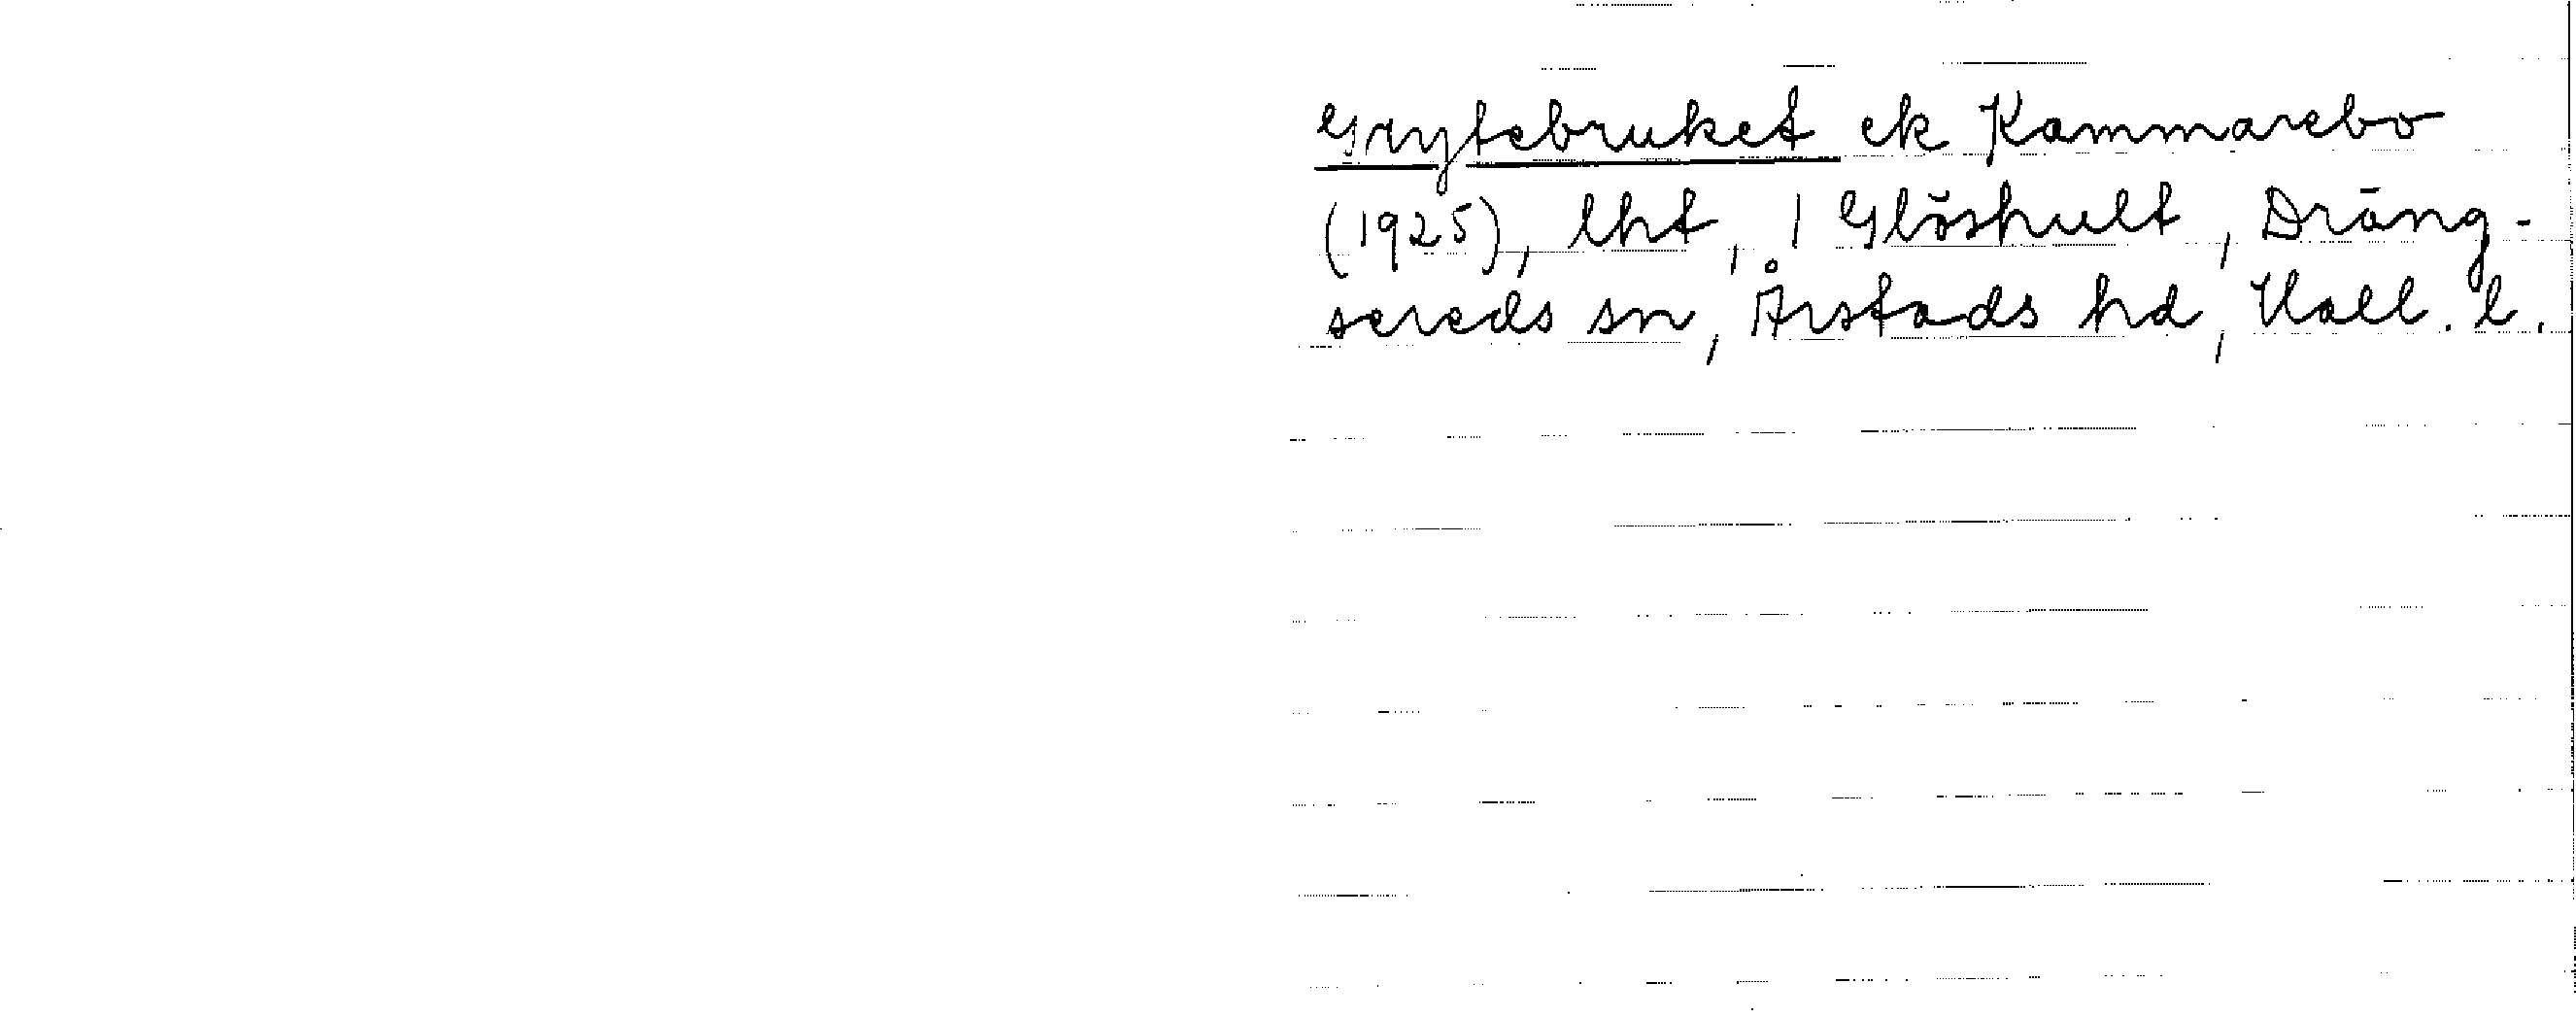 Grytebruket ek Kammarebo
(1925), lht, 1 Glöshult, Dräng-
sereds sn, Årstads hd, Hall. l.